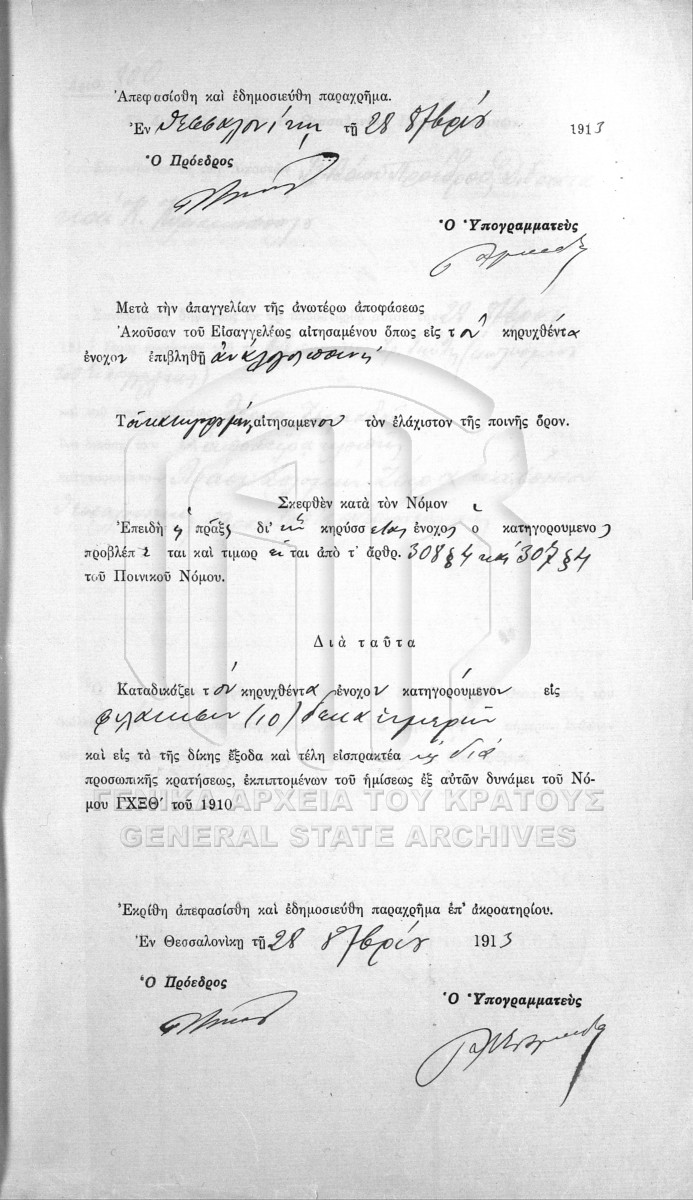 Ἀπεφασίσθη καὶ ἐδημοσιεύθη παραχρῆμα.
Ἐν Θεσσαλονίκη τῇ 28 8/βρίου 1913
Ὁ Πρόεδρος
Ὁ Ὑπογραμματεὺς
Μετὰ τὴν ἀπαγγελίαν τῆς ἀνωτέρω ἀποφάσεως
Ἀκοῦσαν τοῦ Εἰσαγγελέως αἰτησαμένου ὅπως εἰς τὸν κηρυχθέντα
ἔνοχον ἐπιβληθῇ ἀνάλογος ποινή
αἰτησαμενον τὸν ἐλάχιστον τῆς ποινῆς ὅρον.
Σκεφθὲν κατὰ τὸν Νόμον
Ἐπειδὴ ἡ πρᾶξις δι' ἣν κηρύσσεται ἔνοχος ὁ κατηγορουμενος
προβλέπεται καὶ τιμωρεῖται ἀπὸ τ' ἄρθρ. 308 § 4 καὶ 307 § 4
τοῦ Ποινικοῦ Νόμου.
Διὰ ταῦτα
Καταδικάζει τὸν κηρυχθέντα ἔνοχον κατηγορούμενον εἰς
φυλάκισιν (10) δέκα ἡμερῶν
καὶ εἰς τὰ τῆς δίκης ἔξοδα καὶ τέλη εἰσπρακτέα διὰ
προσωπικῆς κρατήσεως, ἐκπιπτομένων τοῦ ἡμίσεως ἐξ αὐτῶν δυνάμει τοῦ Νό-
μου ΓΧΞΘ' τοῦ 1910
ΓΕΝΙΚΑ ΑΡΧΕΙΑ ΤΟΥ ΚΡΑΤΟΥΣ
GENERAL STATE ARCHIVES
Ἐκρίθη ἀπεφασίσθη καὶ ἐδημοσιεύθη παραχρῆμα ἐπ' ἀκροατηρίου.
Ἐν Θεσσαλονίκῃ τῇ 28 8/βρίου 1913
Ὁ Πρόεδρος
Ὁ Ὑπογραμματεὺς